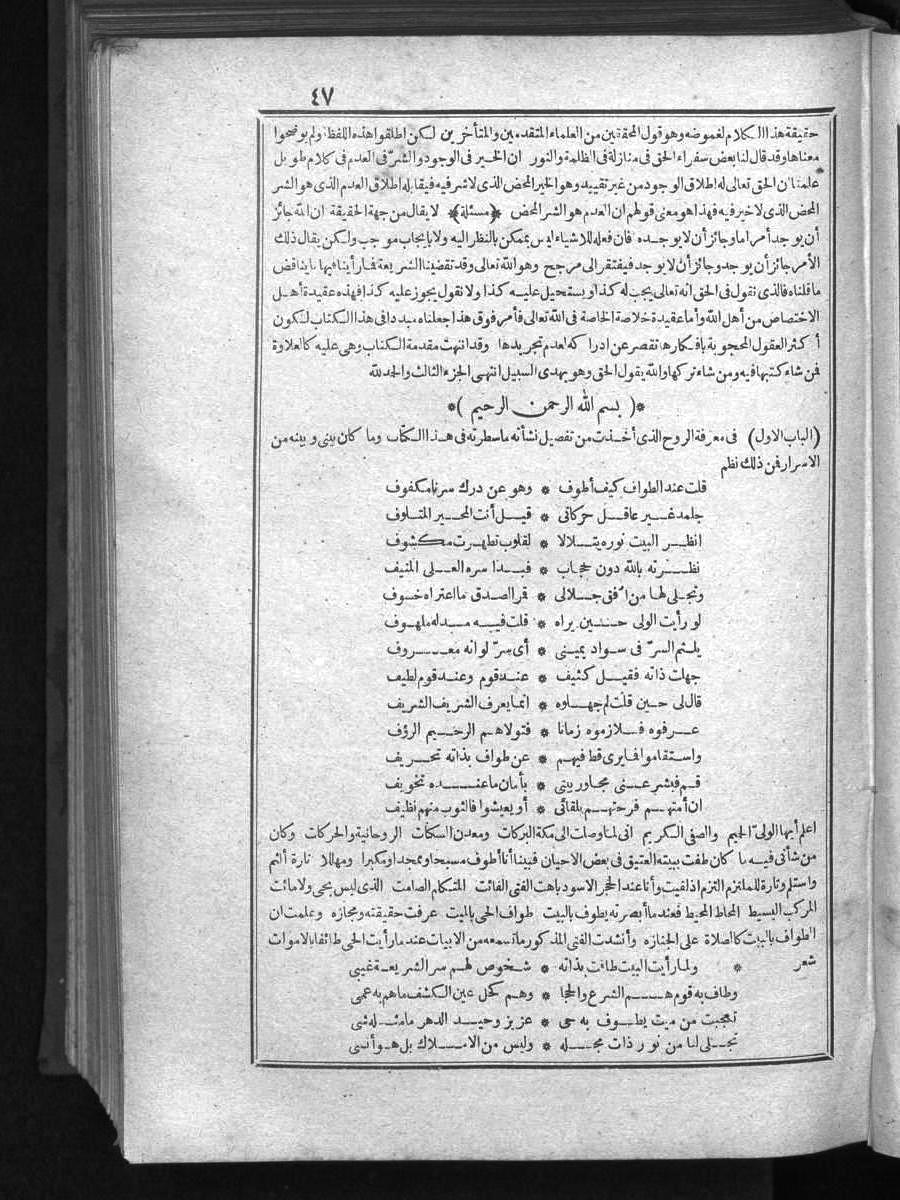 ٤٧
حقيقة هذا الكلام لغموضه وهو قول المحققين من العلماء المتقدمين والمتأخرين لكن اطلقوا هذه اللفظة ولم يوضحوا
معناها وقد قال لنا بعض سفراء الحق فى منازلة فى الظلمة والنور ان الخير فى الوجود والشر فى العدم فى كلام طويل
علمنا ان الحق تعالى له اطلاق الوجود من غير تقييد وهو الخير المحض الذى لا شر فيه فيقابله اطلاق العدم الذى هو الشر
المحض الذى لا خير فيه فهذا هو معنى قولهم ان العدم هو الشر المحض ﴿مسئلة﴾ لا يقال من جهة الحقيقة ان الله جائز
أن يوجد أمراما وجائز أن لا يوجده فان فعله للاشياء ليس بممكن بالنظر اليه ولا بايجاب موجب ولكن يقال ذلك
الأمر جائز أن يوجد وجائز أن لا يوجد فيفتقر الى مرجح وهو الله تعالى وقد تقضينا الشريعة فما رأينا فيها ما يناقض
ما قلناه فالذى نقول فى الحق انه تعالى يجب له كذا ويستحيل عليه كذا ولا نقول يجوز عليه كذا فهذه عقيدة أهل
الاختصاص من أهل الله وأما عقيدة خلاصة الخاصة فى الله تعالى فأمر فوق هذا جعلناه مبددا فى هذا الكتاب لكون
أكثر العقول المحجوبة بافكارها تقصر عن ادراكه لعدم تجريدها وقد انتهت مقدمة الكتاب وهى عليه كالعلاوة
فمن شاء كتبها فيه ومن شاء تركها والله يقول الحق وهو يهدى السبيل انتهى الجزء الثالث والحمد لله
*( بسم الله الرحمن الرحيم )*
(الباب الاول) فى معرفة الروح الذى أخذت من تفصيل نشأته ما سطرته فى هذا الكتاب وما كان بينى وبينه من
الاسرار فمن ذلك نظم
قلت عند الطواف كيف أطوف * وهو عن درك سرنا مكفوف
جلمد غير عاقل حركاتى * قيل أنت المحير المتلوف
انظر البيت نوره يتلالا * لقلوب تطهرت مكشوف
نظرته بالله دون حجاب * فبدا سره العلى المنيف
وتجلى لها من افق جلالى * قمر الصدق ما اعتراه خسوف
لو رأيت الولى حين يراه * قلت فيه مدله ملهوف
يلثم السرّ فى سواد يمينى * أى سرّ لو انه معروف
جهلت ذاته فقيل كثيف * عند قوم وعند قوم لطيف
قال لى حين قلت لم جهلوه * انما يعرف الشريف الشريف
عرفوه فلازموه زمانا * فتولاهم الرحيم الرؤف
واستقاموا فما يرى قط فيهم * عن طواف بذاته تحريف
قم فبشر عنى مجاور بيتى * بأمان ما عنده تخويف
ان أمتهم فرحتهم بلقائى * أو يعيشوا فالثوب منهم نظيف
اعلم أيها الولىّ الحميم والصفى الكريم انى لما وصلت الى مكة البركات ومعدن السكنات الروحانية والحركات وكان
من شأنى فيه ما كان طفت ببيته العتيق فى بعض الاحيان فبينا أنا أطوف مسبحا وممجدا ومكبرا ومهللا تارة ألثم
واستلم وتارة للملتزم التزم اذ لقيت وأنا عند الحجر الاسود باهت الفتى الفائت المتكلم الصامت الذى ليس بحى ولا مائت
المركب البسيط المحاط المحيط فعند ما أبصرته يطوف بالبيت طواف الحى بالميت عرفت حقيقته ومجازه وعلمت ان
الطواف بالبيت كالصلاة على الجنازه وأنشدت الفتى المذكور ما تسمعه من الابيات عند ما رأيت الحى طائفا بالاموات
شعر * ولما رأيت البيت طافت بذاته * شخوص لهم سر الشريعة غيبى
وطاف به قوم هم الشرع والحجا * وهم كحل عين الكشف ما هم به عمى
تعجبت من ميت يطوف به حى * عزيز وحيد الدهر ما مثله شى
تجلى لنا من نور ذات مجله * وليس من الاملاك بل هو أنسى